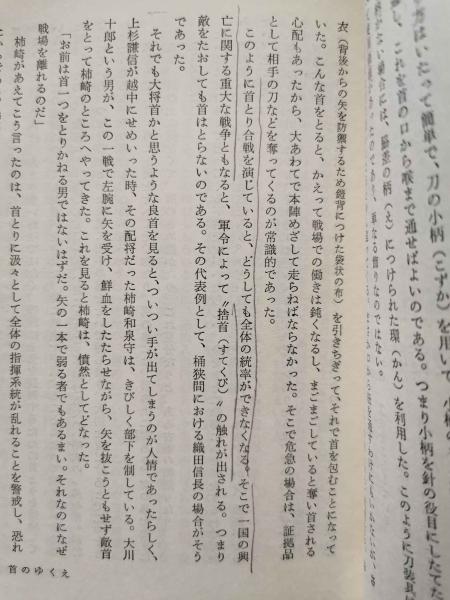 って簡単で、刀の小柄（こずか）を用いて
これを首の口から喉まで通せばよいのである。つまり小柄を針の役目にしたてた
の柄（え）につけられた環（かん）を利用した。このように刀装具
単なる飾りなのではない。
衣（背後からの矢を防禦するため鎧背につけた袋状の布）を引きちぎって、それで首を包むことになって
いた。こんな首をとると、かえって戦場での働きは鈍くなるし、まごまごしていると奪い首される
心配もあったから、大あわてで本陣めざして走らねばならなかった。そこで危急の場合は、証拠品
として相手の刀などを奪ってくるのが常識的であった。
このように首とり合戦を演じていると、どうしても全体の統率ができなくなる。そこで一国の興
亡に関する重大な戦争ともなると、軍令によって〝捨首（すてくび）〟の触れが出される。つまり
敵をたおしても首はとらないのである。その代表例として、桶狭間における織田信長の場合がそう
であった。
それでも大将首かと思うような良首を見ると、ついつい手が出てしまうのが人情であったらしく、
上杉謙信が越中にせめいった時、その配将だった柿崎和泉守は、きびしく部下を制している。大川
十郎という男が、この一戦で左腕に矢を受け、鮮血をしたたらせながら、矢を抜こうともせず敵首
をとって柿崎のところへやってきた。これを見ると柿崎は、憤然としてどなった。
「お前は首一つをとりかねる男ではないはずだ。矢の一本で弱る者でもあるまい。それなのになぜ
戦場を離れるのだ」
柿崎があえてこう言ったのは、首とりに汲々として全体の指揮系統が乱れることを警戒し、恐れ
首のゆくえ